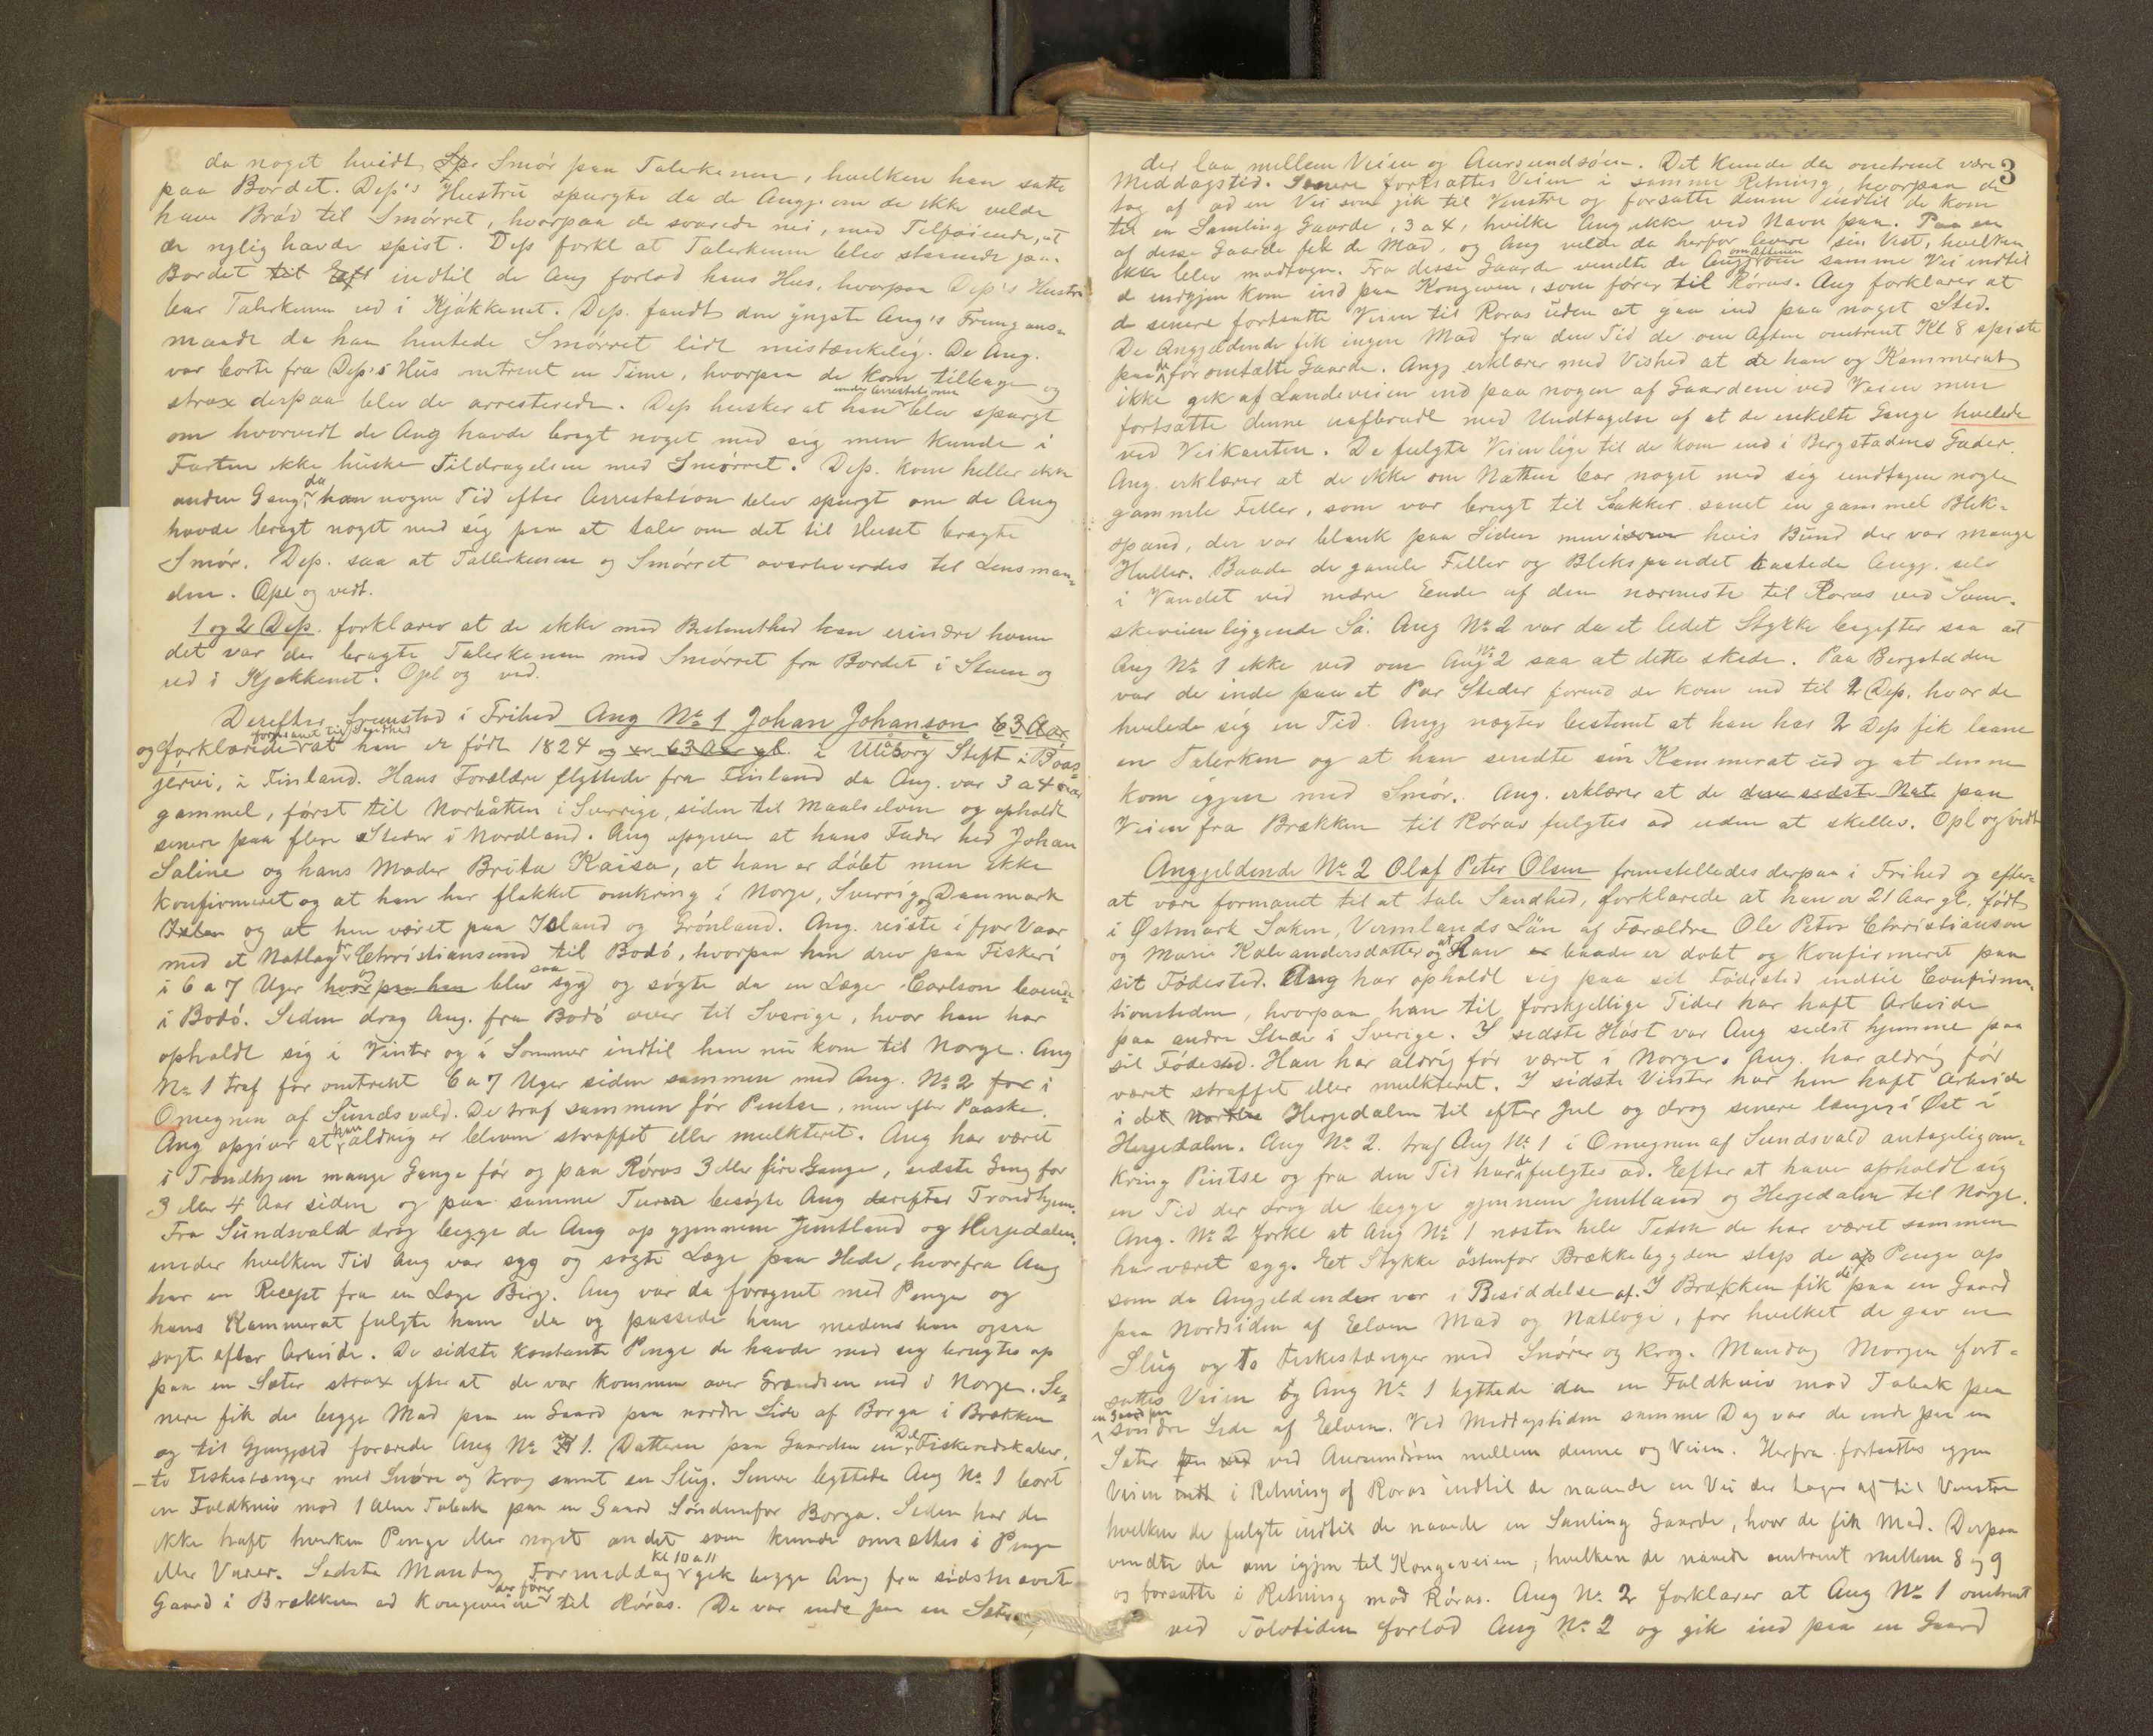 da noget hvidt Spe Smör paa Talerkenen, hvelken han satte
paa Bordet. Dep's Hustru spurgte da de Angj. om de ikke velde
have Bröd til Smörret, hvorpaa de svarede nei, med Tilföiende, at
de nylig havde spist. Dep forkl at Talerkenen blev staaende paa
Bordet til Eft indtil de Ang forlod hans Hus, hvorpaa Dep's Hustru
bar Talerkenen ud i Kjökkenet. Dep. fandt den yngste Ang's Fremgangs-
maade da han hentede Smörret lidt mistænkelig. De Ang.
var borte fra Dep's Hus omtrent en Time, hvorpaa de kom tilbage og
strax derpaa blev de arresterede. Dep husker at han under Arrestationen blev spurgt
om hvorvidt de Ang havde bragt noget med sig men kunde i
Farten ikke huske Tildragelsen med Smörret. Dep. kom heller ikke
anden Gang, da han nogen Tid efter Arrestation blev spurgt om de Ang
havde bragt noget med sig paa at tale om det til Huset bragte
Smör. Dep. saa at Tallerkenen og Smörret overleverdes til Lensman-
den. Opl og vedt.
1 og 2 Dep. forklarer at de ikke med Bestemthed kan erindre hvem
det var der bragte Talerkenen med Smörret fra Bordet i Stuen og
ud i Kjøkkenet. Opl og ved.
Derefter fremstod i Frihed Ang No 1 Johan Johanson 63 Aar
og forklarede formanet til Sandhed at han er født 1824 og er 63 Aar gl. i Uleåborg Stift i
jervi, i Finland. Hans Forældre flyttede fra Finland da Ang. var 3 a 4 Aar
gammel, først til Norbåtten i Sverrige, siden til Maalselven og opholdt
senere paa flere Steder i Nordland. Ang opgiver at hans Fader hed Johan
Saline og hans Moder Brita Kaisa, at han er döbt men ikke
konfirmeret og at han har flakket omkring i Norge, Sverrig og Danmark
og at hen været paa Island og Grönland. Ang. reiste i fjor Vaar
med et Notlag fr Christiansund til Bodö, hvorpaa han drev paa Fiskeri
i 6 a 7 Uger hvorpaa han blev saa syg og søgte da en Læge Carlson boende
i Bodö. Siden drog Ang. fra Bodö over til Sverige, hvor han har
opholdt sig i Vinter og i Sommer indtil han nu kom til Norge. Ang
No 1 traf for omtrent 6 a 7 Uger siden sammen med Ang. No 2 for i
Omegnen af Sundsvald. De traf sammen för Pintse, men efter Paaske.
Ang opgiver at han aldrig er bleven straffet eller mulkteret. Ang har været
i Trondhjem mange Gange för og paa Röros 3 eller fire Gange, sidste Gang for
3 eller 4 Aar siden og paa samme Turen besøgte Ang derefter Trondhjem.
Fra Sundsvald drog begge de Ang op gjennem Jemtland og Herjedalen,
under hvelken Tid Ang var syg og søgte Læge paa Hede, hvorfra Ang
har en Recept fra en Læge Berg. Ang var da forsynet med Penge og
hans Kammerat fulgte ham da og passede ham medens han ogsaa
søgte efter Arbeide. De sidste kontante Penge de havde med sig brugtes op
paa en Sæter strax efter at de var kommen over Grændsen ind i Norge. Se-
nere fik de begge Mad paa en Gaard paa nordre Side af Borga i Brækken
og til Gjengjæld forærede Ang No 1. Datteren paa Gaarden en Del Fiskeredskaber,
- to Fiskestænger med Snøre og Krog samt en Slug. Senere byttede Ang No. 1 bort
en Foldkniv mod 1 Alen Tobak paa en Gaard Söndenfor Borga. Siden har de
ikke haft hverken Penge eller noget andet som kunde omsættes i Penge
eller Varer. Sidste Mandag Formiddag Kl 10 a 11 gik begge Ang fra sidstnævnte
Gaard i Brækken ad Kongeveien der fører til Röros. De var inde paa en Sæter,
3
der laa mellem Veien og Aursundsöen. Det kunde da omtrent være
Middagstid. Senere fortsattes Veien i samme Retning, hvorpaa de
tog af ad en Vei som gik til Venstre og forsatte denne indtil de kom
til en Samling Gaarde, 3 a 4, hvilke Ang ikke ved Navn paa. Paa en
af desse Gaarde fik de Mad, og Ang velde da herfor levere sin Vest, hvelken
ikke blev modtagen. Fra desse Gaarde vendte de Angj om Aftenen samme Vei indtil
de endgjen kom ind paa Kongeveien, som fører til Röros. Ang forklarer at
de senere fortsatte Veien til Roros uden at gaa ind paa noget Sted.
De Angjældende fik ingen Mad fra den Tid de om Aften omtrent Kl 8 spiste
paa de foromtalte Gaarde. Angj erklærer med Vished at de han og Kammerat
ikke gik af Landeveien ind paa nogen af Gaardene ved Veien men
fortsatte denne uafbrudt med Undtagelse af at de enkelte Gange hvelede
ved Veikanten. De fulgte Veien lige til de kom ind i Bergstadens Gader.
Ang. erklærer at de ikke om Natten bar noget med sig undtagen nogle
gammle Filler, som var brugt til Sokker samt en gammel Blik-
spand, der var blank paa Siden men i hvis Bund der var mange
Huller. Baade de gamle Filler og Blikspandet kastede Angj. selv
i Vandet ved nedre Ende af den nærmeste til Röros ved Sven-
skeveien liggende Sö. Ang No 2 var da et lidet Stykke bagefter saa at
Ang No 1 ikke ved om Ang No 2 saa at dette skede. Paa Bergstaden
var de inde paa et Par Steder forend de kom ind til 2 Dep. hvor de
hvelede sig en Tid. Angj negter bestemt at han hos 2 Dep fik laane
en Talerken og at han sendte sin Kammerat ud og at denne
kom igjen med Smör. Ang. erklærer at de den sidste Nat paa
Veien fra Brækken til Röros fulgtes ad uden at skelles. Opl og vedt
Angjeldende No 2 Olaf Peter Olsen fremstilledes derpaa i Frihed og efter
at være formanet til at tale Sandhed, forklarede at han er 21 Aar gl. født
i Østmark Soken, Vermlands Län af Forældre Ole Peter Christianson
og Marie Kaleandersdatter og at Han er baade er dobt og konfirmeret paa
sit Födested. Ang har opholdt sig paa sit Födested indtil Confirma-
tionstiden, hvorpaa han til forskjellige Tider har haft Arbeide
paa andre Steder i Sverige. I sidste Höst var Ang sidst hjemme paa
sit Födested. Han har aldrig för været i Norge. Ang. har aldrig för
været straffet eller mulkteret. I sidste Vinter har han haft Arbeide
i det Nordre Herjedalen til efter Jul og drog senere længer i Øst i
Herjedalen. Ang No 2. traf Ang No 1 i Omegnen af Sundsvald antageligom-
kring Pintse og fra den Tid har de fulgtes ad. Efter at have opholdt sig
en Tid der drog de begge gjennem Jemtland og Herjedalen til Norge.
Ang. No 2 forkl at Ang No 1 næsten hele Tiden de har været sammen
har været syg. Et Stykke östenfor Brækkebygden slap de op Penge op
som de Angjeldende var i Besiddelse af. I Brækken fik de paa en Gaard
paa Nordsiden af Elven Mad og Natlogi, for hvelket de gav en
Slug og to Fiskestænger med Snører og Krog. Mandag Morgen fort-
sattes Veien og Ang No 1 byttede da en Foldkniv mod Tobak paa
en Gaard paa söndre Side af Elven. Ved Middagstiden samme Dag var de inde paa en
Sæter ved Aursundsöen mellem denne og Veien. Herfra fortsattes igjen
Veien i Retning af Roros indtil de naaede en Vei der tager af til Venstre
hvelken de fulgte indtil de naaede en Samling Gaarde, hvor de fik Mad. Derpaa
vendte de om igjen til Kongeveien, hvelken de naaede omtrent mellem 8 og 9
og forsatte i Retning mod Röros. Ang No. 2 forklarer at Ang No 1 omtrent
ved Tolvtiden forlod Ang No 2 og gik ind paa en Gaard